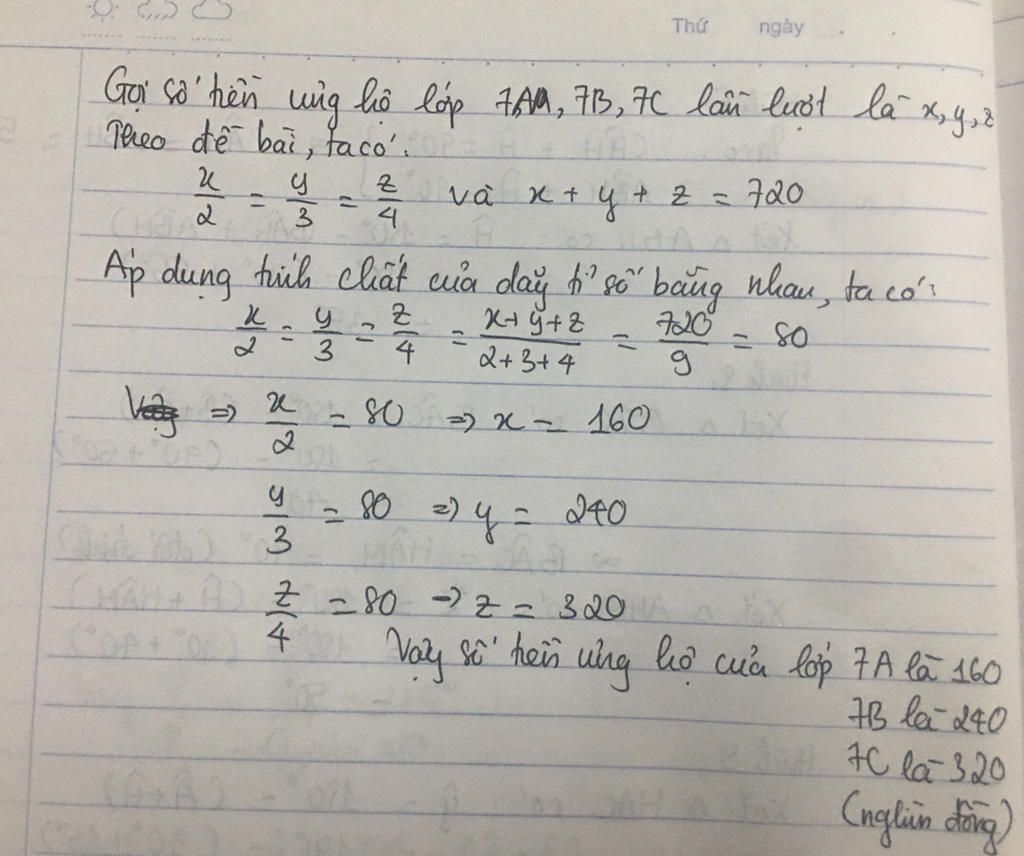 Thứ ngày
Gọi số tiền ủng hộ lớp 7A, 7B, 7C lần lượt là x, y, z
Theo đề bài, ta có:
x/2 = y/3 = z/4 và x + y + z = 720
Áp dụng tính chất của dãy tỉ số bằng nhau, ta có:
x/2 = y/3 = z/4 = (x+y+z)/(2+3+4) = 720/9 = 80
⇒ x/2 = 80 ⇒ x = 160
y/3 = 80 ⇒ y = 240
z/4 = 80 → z = 320
Vậy số tiền ủng hộ của lớp 7A là 160
7B là 240
7C là 320
(nghìn đồng)